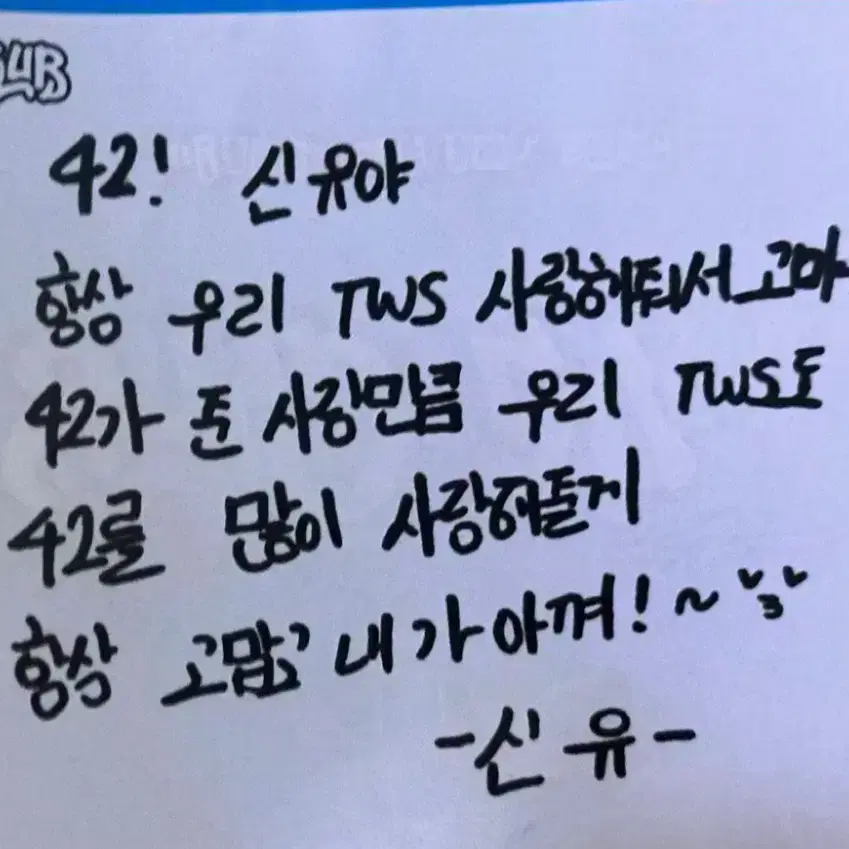 42! 신유야
항상 우리 TWS 사랑해줘서 고마
42가 준 사랑만큼 우리 TWS도
42를 많이 사랑해줄게
항상 고맙고 내가 아껴!~
-신유-